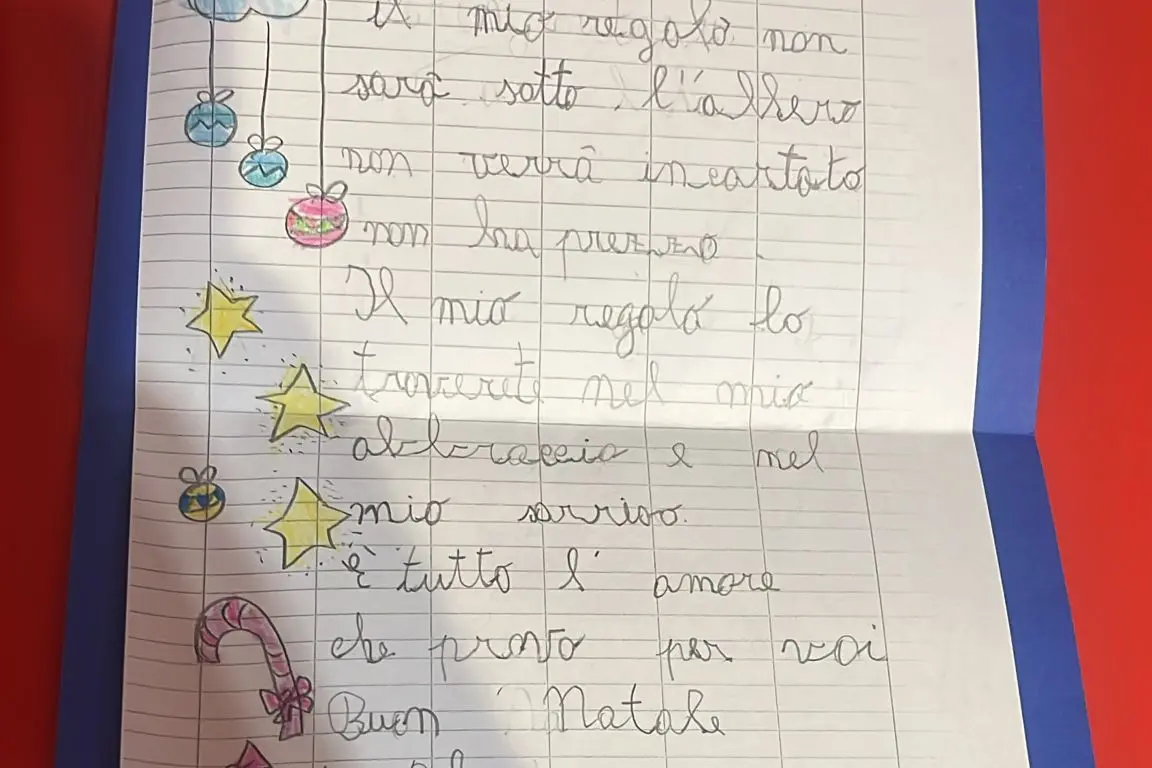 il mio regalo non
sarà sotto l'albero
non verrà incartato
non ha prezzo
Il mio regalo lo
troverete nel mio
abbraccio e nel
mio sorriso.
è tutto l'amore
che provo per voi
Buon Natale